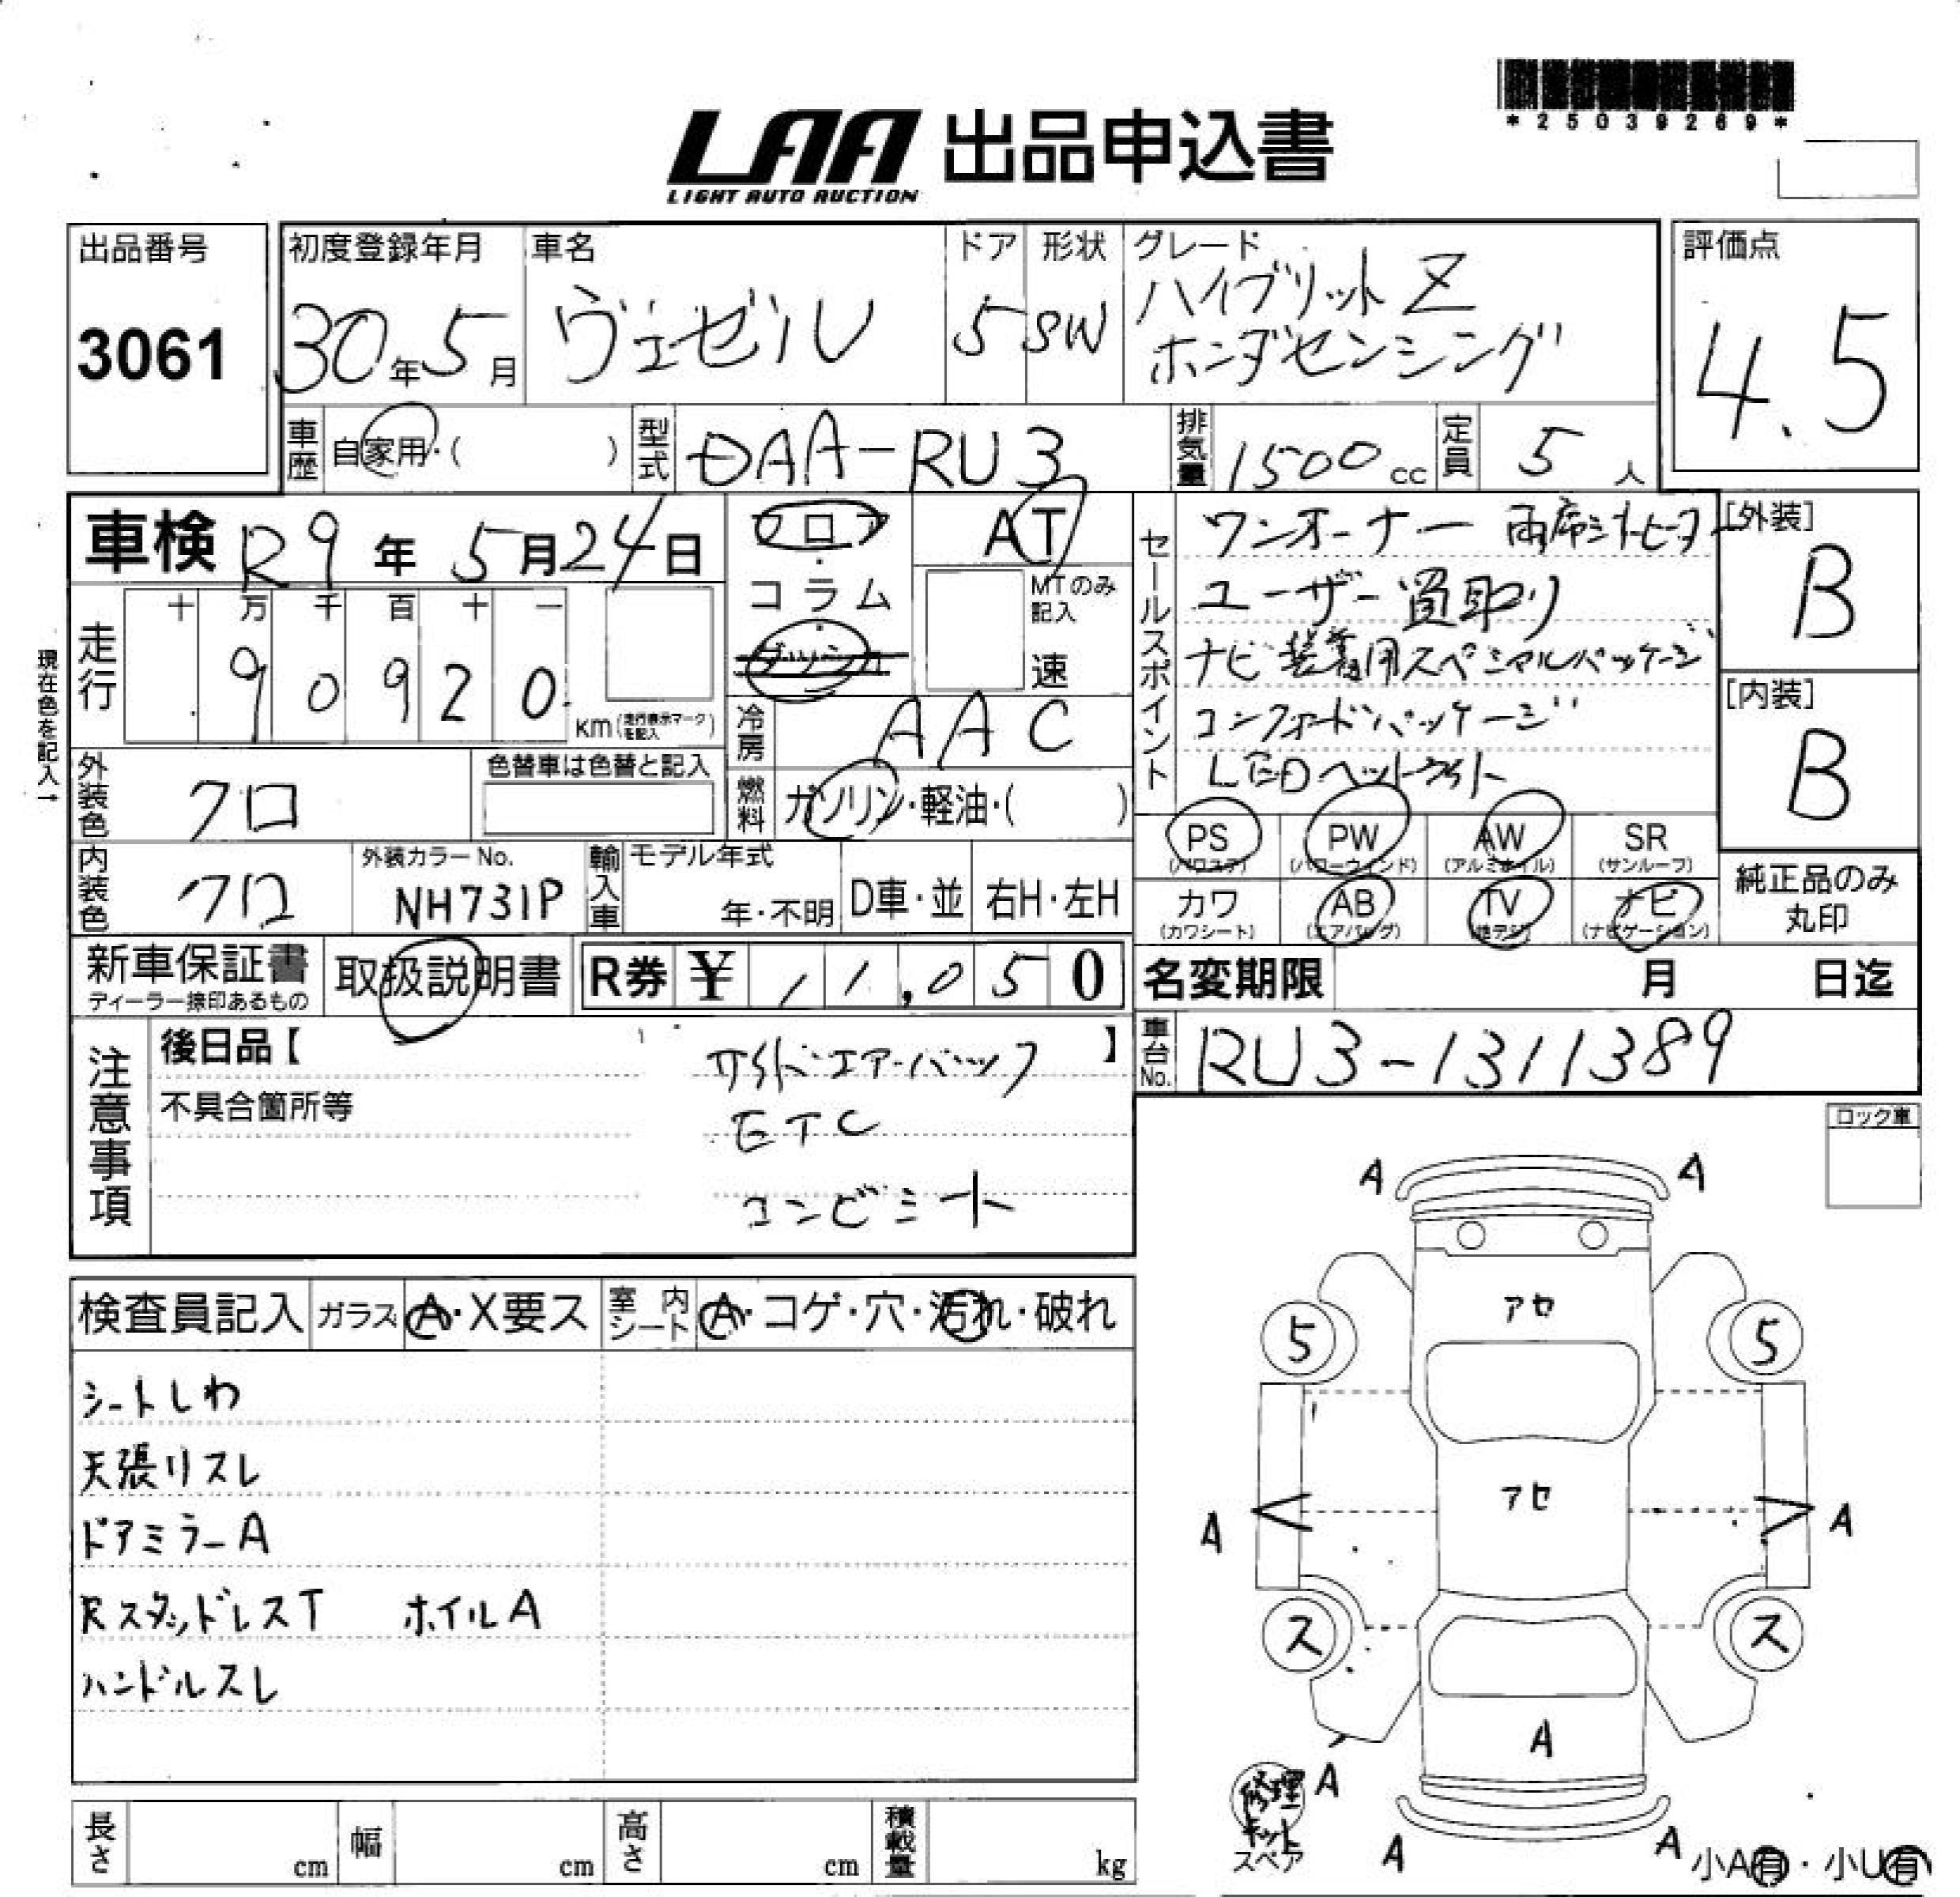 *25039269*
LAA 出品申込書
LIGHT AUTO AUCTION
出品番号
3061
初度登録年月
30年5月
車名
ヴェゼル
ドア
5
形状
SW
グレード
ハイブリットZ
ホンダセンシング
評価点
4.5
車歴 自家用・( )
型式 DAA-RU3
排気量 1500cc
定員 5人
車検 R9年5月24日
フロア・コラム・ダッシュ
AT
MTのみ記入
速
走行
十 万 千 百 十 一
9 0 9 2 0
km(走行表示マークを記入)
現在色を記入→
冷房 AAC
燃料 ガソリン・軽油・( )
外装色 クロ
色替車は色替と記入
内装色 クロ
外装カラーNo.
NH731P
輸入車
モデル年式
年・不明
D車・並
右H・左H
セールスポイント
ワンオーナー 両席シートヒーター
ユーザー買取り
ナビ装着用スペシャルパッケージ
コンフォートパッケージ
LEDヘットライト
[外装]
B
[内装]
B
PS (パワステ)
PW (パワーウィンド)
AW (アルミホイル)
SR (サンルーフ)
カワ (カワシート)
AB (エアバッグ)
TV (地デジ)
ナビ (ナビゲーション)
純正品のみ
丸印
新車保証書
ディーラー捺印あるもの
取扱説明書
R券 ¥ 11,050
名変期限 月 日迄
車台No. RU3-1311389
注意事項
後日品【 】
不具合箇所等
サイドエアーバック
ETC
コンビシート
ロック車
検査員記入 ガラス A・X要ス 室内シート A・コゲ・穴・汚れ・破れ
シートしわ
天張りスレ
ドアミラーA
Rスタッドレス T ホイルA
ハンドルスレ
A A
アセ
5 5
アセ
A A
ス ス
A
A
修理
キット
スペア
A A
小A有・小U有
長さ cm
幅 cm
高さ cm
積載量 kg